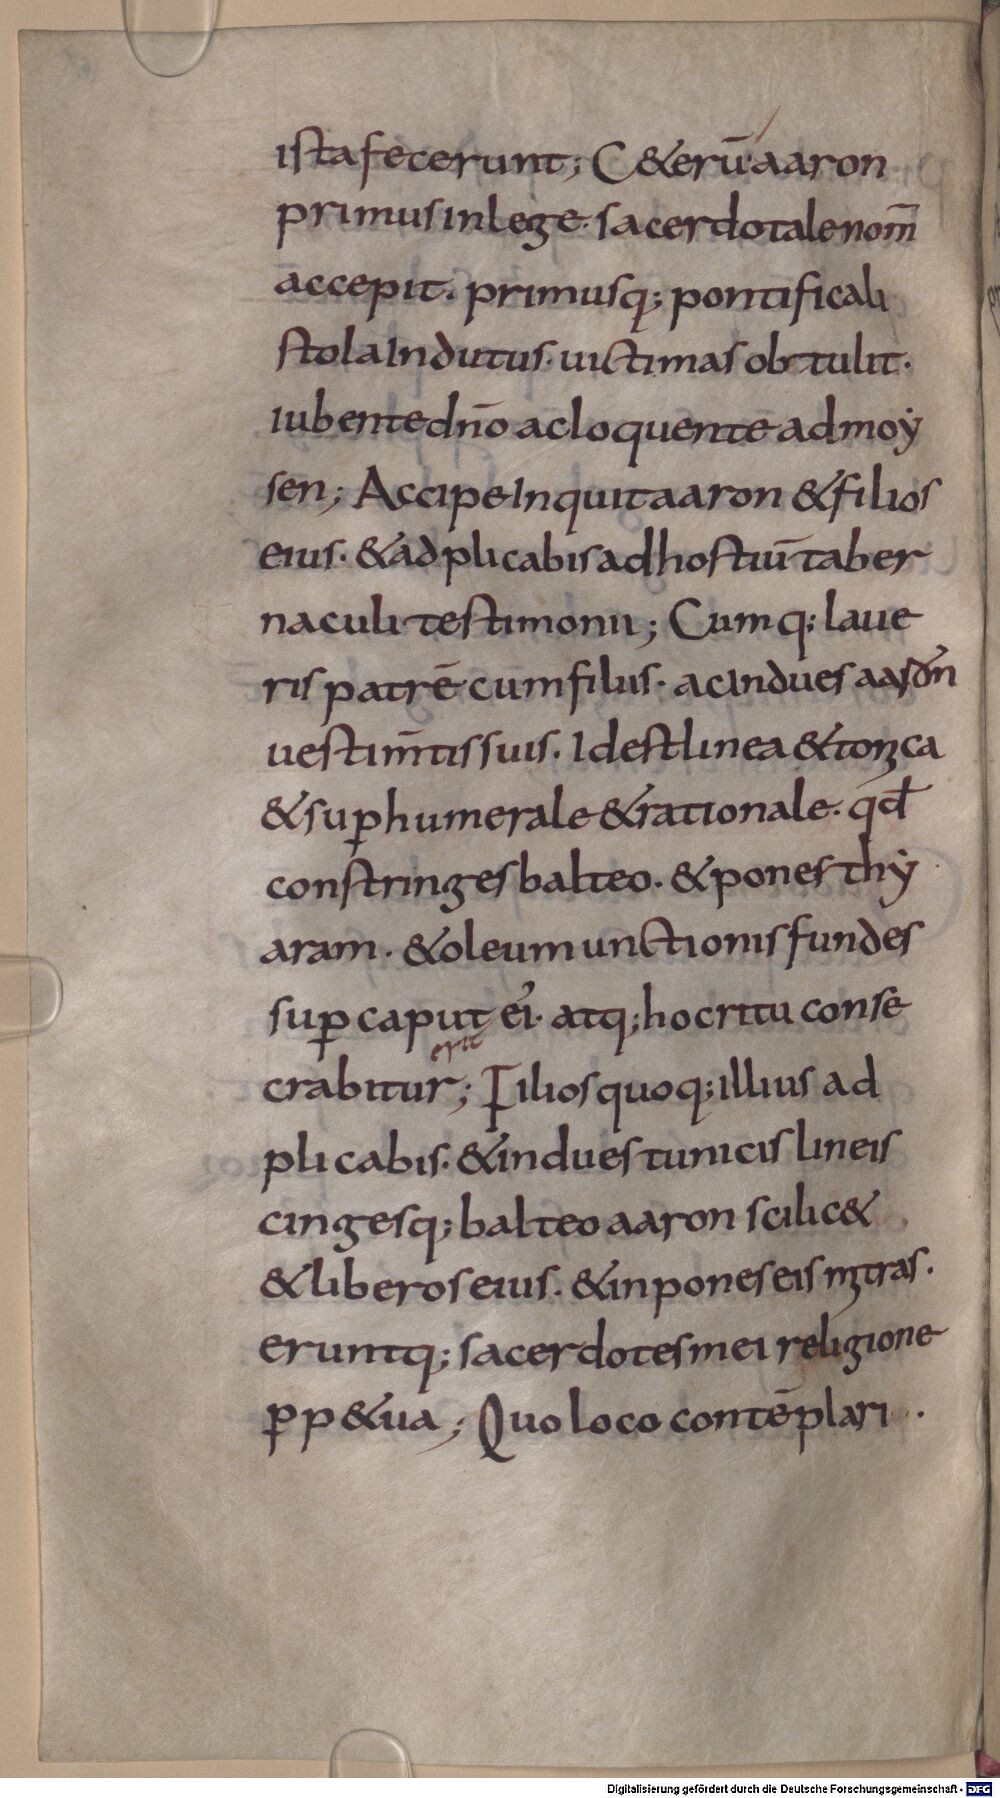 ista fecerunt; C&erū aaron
primus in lege. sacerdotale nom̄
accepit. primusq; pontificali
stola Indutus. uictimas obtulit.
iubente dn̄o ac loquente ad moẏ
sen; Accipe Inquit aaron & filios
eius. & adplicabis ad hostiū taber
naculi testimonii; Cumq; laue
ris patrē cum filiis. ac Indues
uestim̄tis suis. Id est linea & tonica
& suꝑhumerale & rationale. qd̄
constringes balteo. & pones thẏ
aram. & oleum unctionis fundes
suꝑ caput ei'. atq; hoc ritu conse
erit
crabitur; Filios quoq; illius ad
plicabis. & indues tunicis lineis
cingesq; balteo aaron scilic&
& liberos eius. & inpones eis mitras.
eruntq; sacerdotes mei religione
ꝑp&ua; Quo loco contēplari
Digitalisierung gefördert durch die Deutsche Forschungsgemeinschaft - DFG